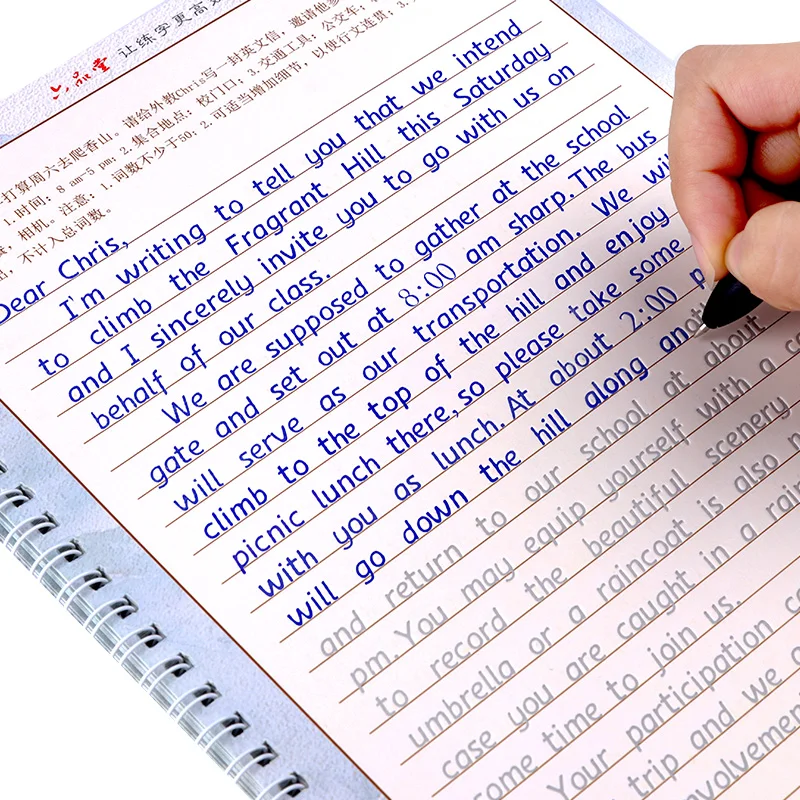 六品堂 让练字更高效
打算周六去爬香山。请给外教Chris写一封英文信，邀请他参
1.时间：8 am-5 pm；2.集合地点：校门口；3.交通工具：公交车；
相机。注意：1.词数不少于50；2.可适当增加细节，以使行文连贯；3.
不计入总词数。
Dear Chris,
I'm writing to tell you that we intend
to climb the Fragrant Hill this Saturday
and I sincerely invite you to go with us on
behalf of our class.
We are supposed to gather at the school
gate and set out at 8:00 am sharp. The bus
will serve as our transportation. We will
climb to the top of the hill and enjoy
picnic lunch there, so please take some
with you as lunch. At about 2:00 p
will go down the hill along another
and return to our school at about
pm. You may equip yourself with a ca
to record the beautiful scenery
umbrella or a raincoat is also n
case you are caught in a rain
some time to join us.
Your participation ca
trip and we a
involvemen